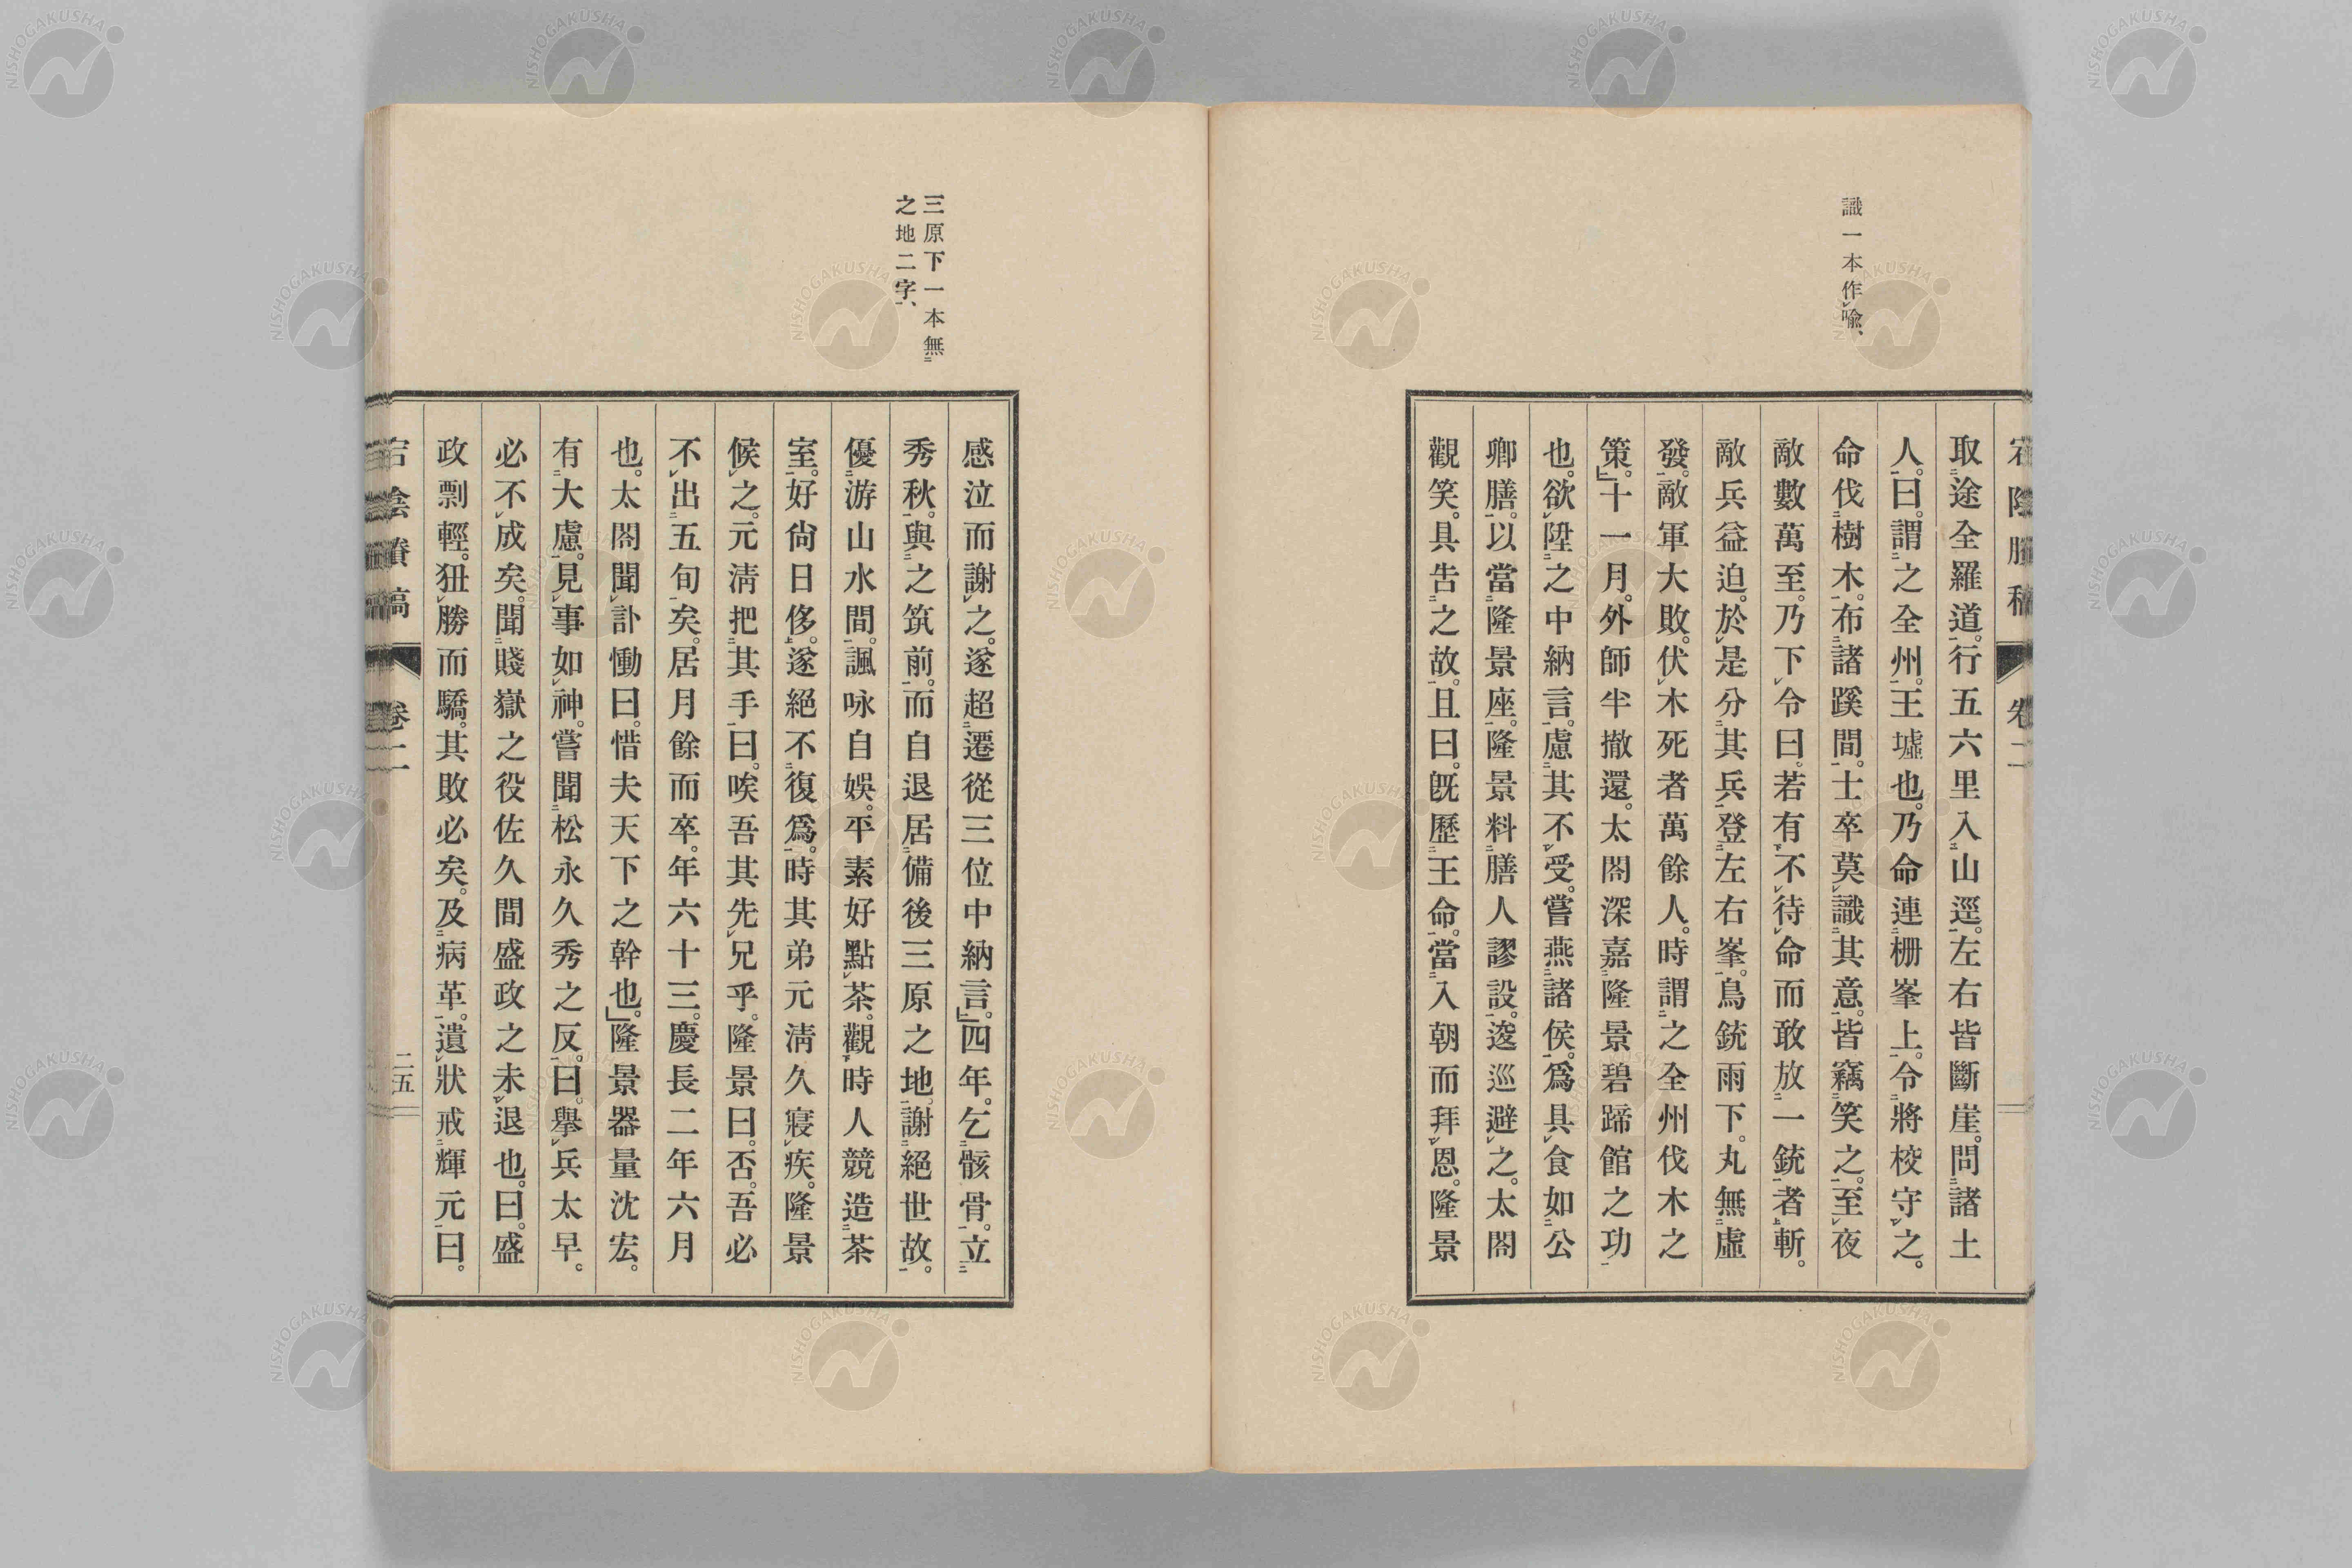 識一本作喩、
取途全羅道。行五六里入山逕。左右皆斷崖。問諸土
人。曰。謂之全州。王墟也。乃命連柵峯上。令將校守之。
命伐樹木。布諸蹊間。士卒莫識其意。皆竊笑之。至夜
敵數萬至。乃下令曰。若有不待命而敢放一銃者斬。
敵兵益迫。於是分其兵登左右峯。鳥銃雨下。丸無虛
發。敵軍大敗。伏木死者萬餘人。時謂之全州伐木之
策。」十一月。外師半撤還。太閤深嘉隆景碧蹄館之功
也。欲陞之中納言。慮其不受。嘗燕諸侯。爲具食如公
卿膳。以當隆景座。隆景料膳人謬設。逡巡避之。太閤
觀笑。具告之故。且曰。既歷王命。當入朝而拜恩。隆景
三原下一本無
之地二字、
感泣而謝之。遂超遷從三位中納言。」四年。乞骸骨。立
秀秋。與之筑前。而自退居備後三原之地。謝絕世故。
優游山水間。諷咏自娛。平素好點茶。觀時人競造茶
室。好尙日侈。遂絕不復爲。時其弟元淸久寢疾。隆景
候之。元淸把其手曰。唉吾其先兄乎。隆景曰。否。吾必
不出五旬矣。居月餘而卒。年六十三。慶長二年六月
也。太閤聞訃慟曰。惜夫天下之幹也。」隆景器量沈宏。
有大慮。見事如神。嘗聞松永久秀之反。曰。擧兵太早。
必不成矣。聞賤嶽之役佐久間盛政之未退也。曰。盛
政剽輕。狃勝而驕。其敗必矣。及病革。遺狀戒輝元曰。
卷二
二五
NISHOGAKUSHA